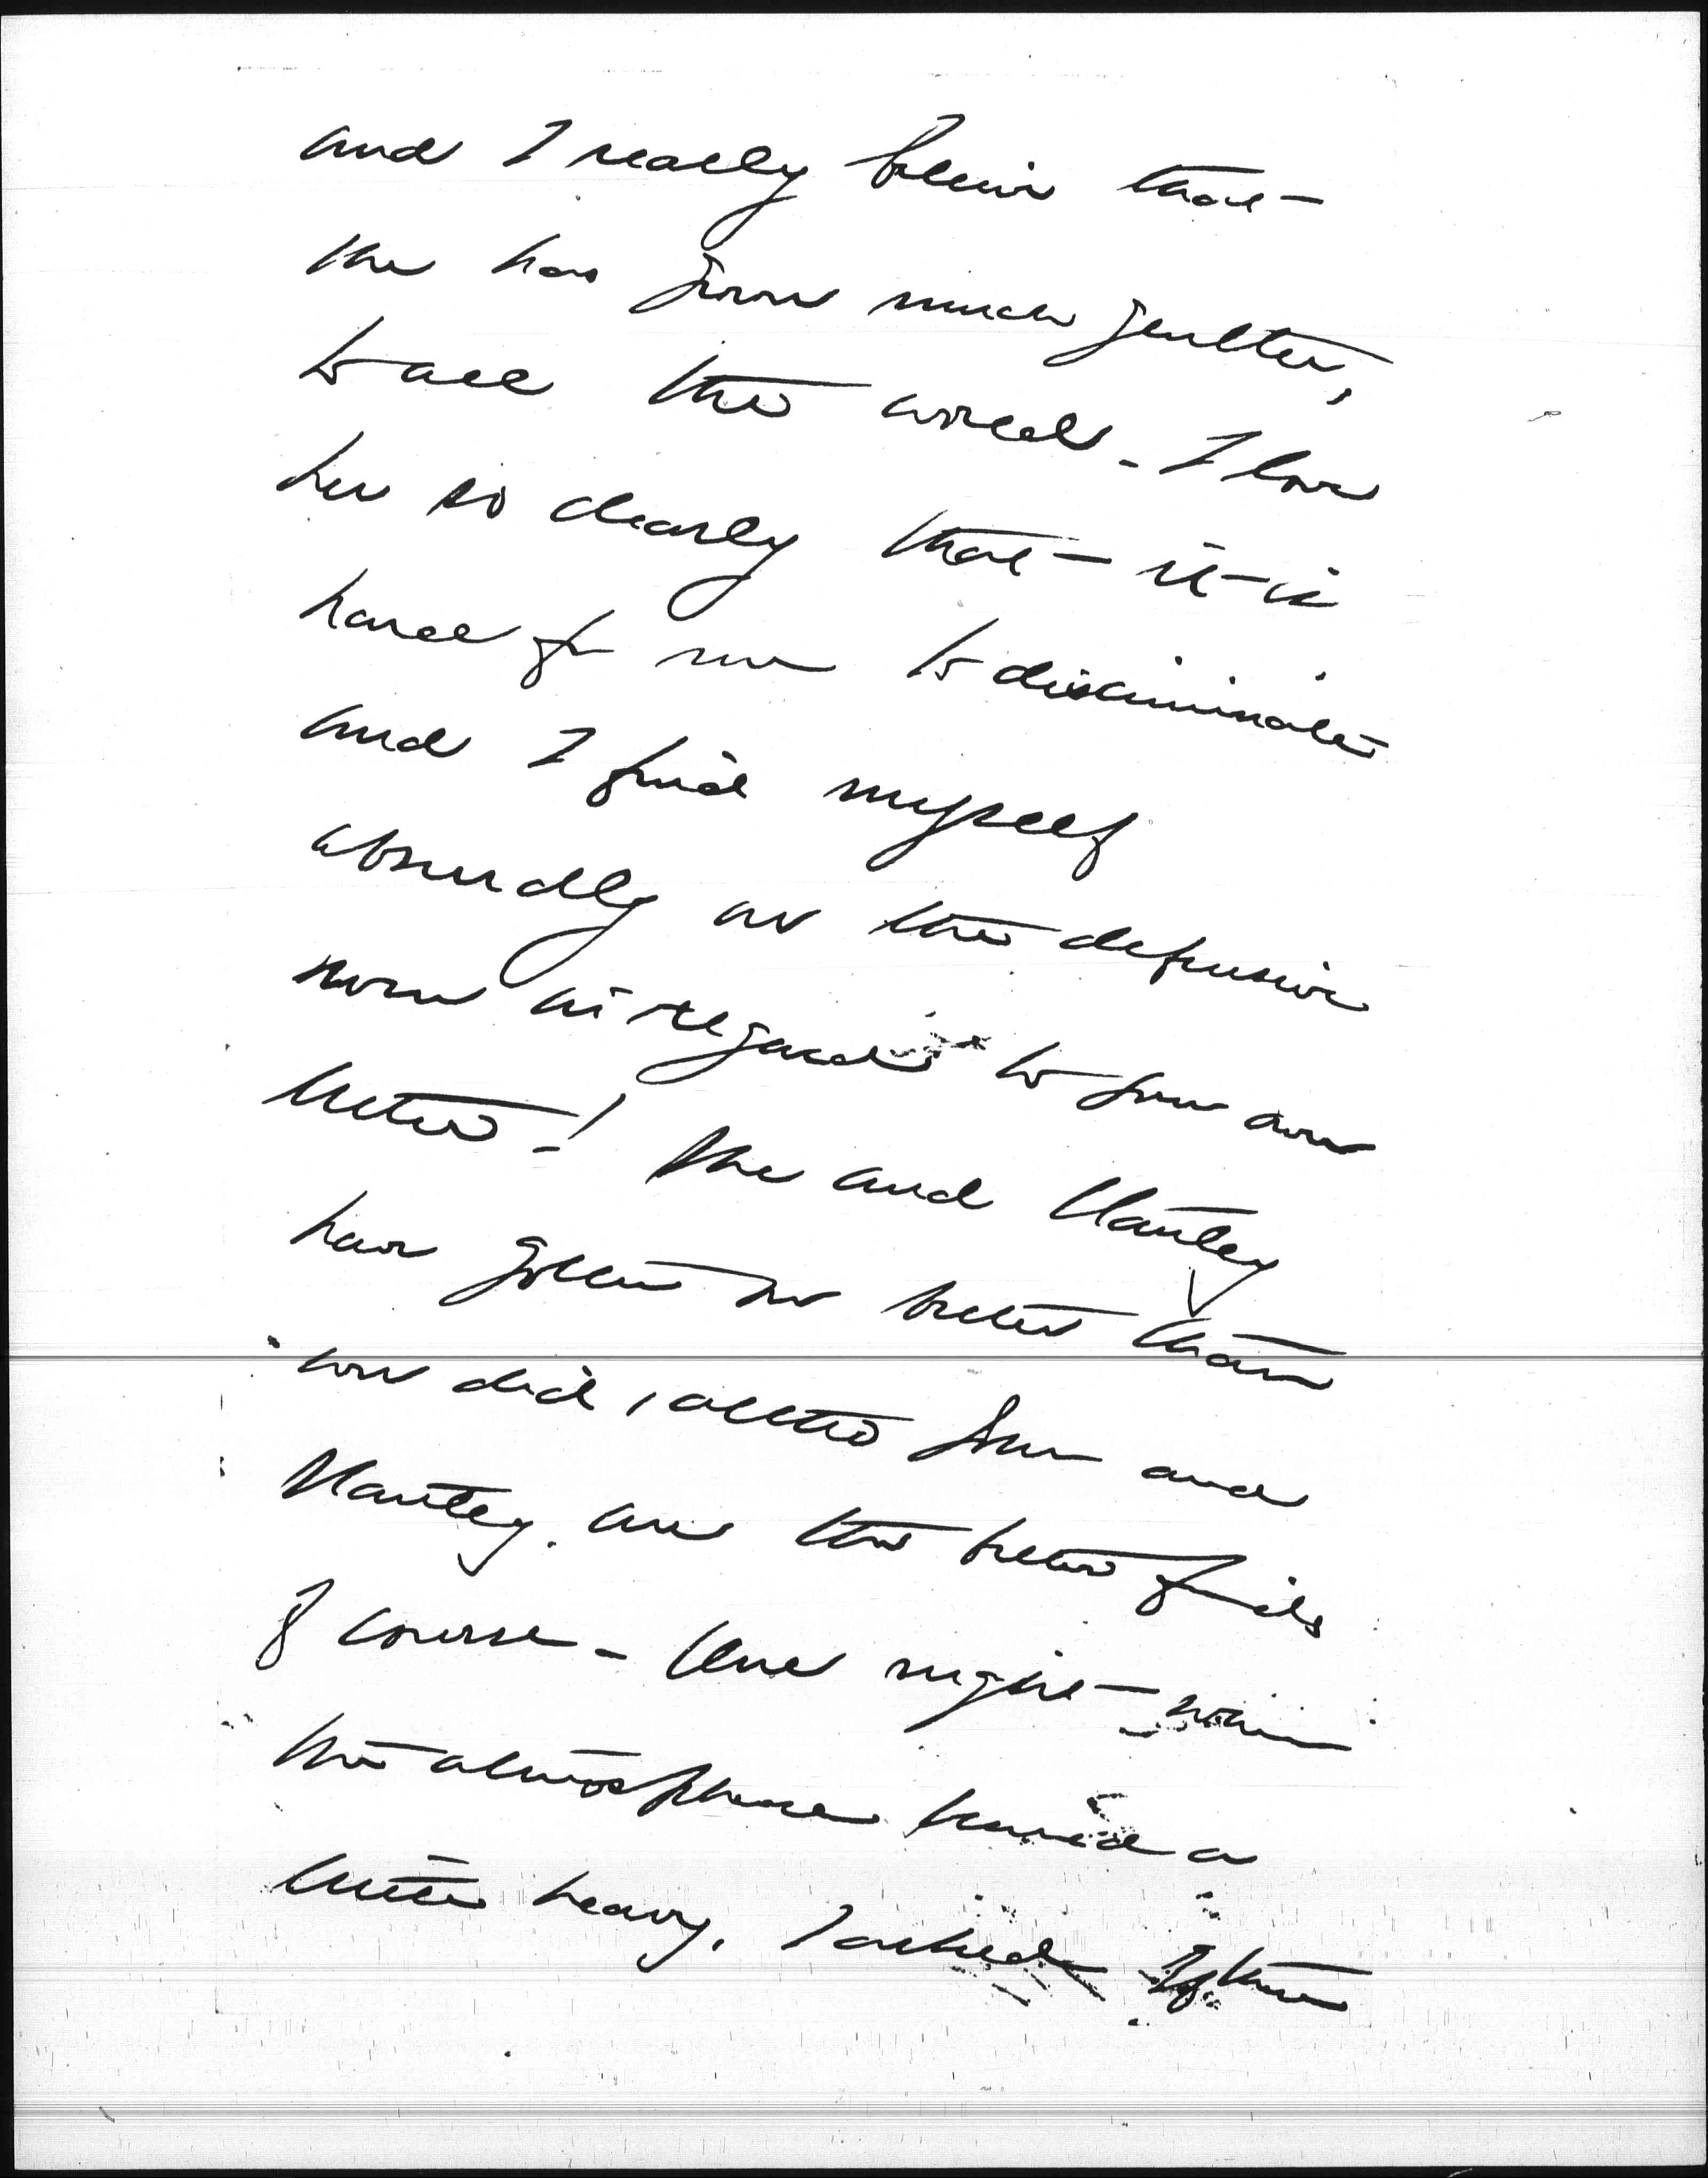 and I really believe that
she has grown much gentler,
to all the world. I love
her so dearly that it is
hard for me to discriminate
and I find myself
absurdly on the defensive
now in regard to your own
letter! She and
have gotten no better than
we did, altho you and
are the better friends
of course - One night when
the atmosphere turned a
little heavy, I asked if